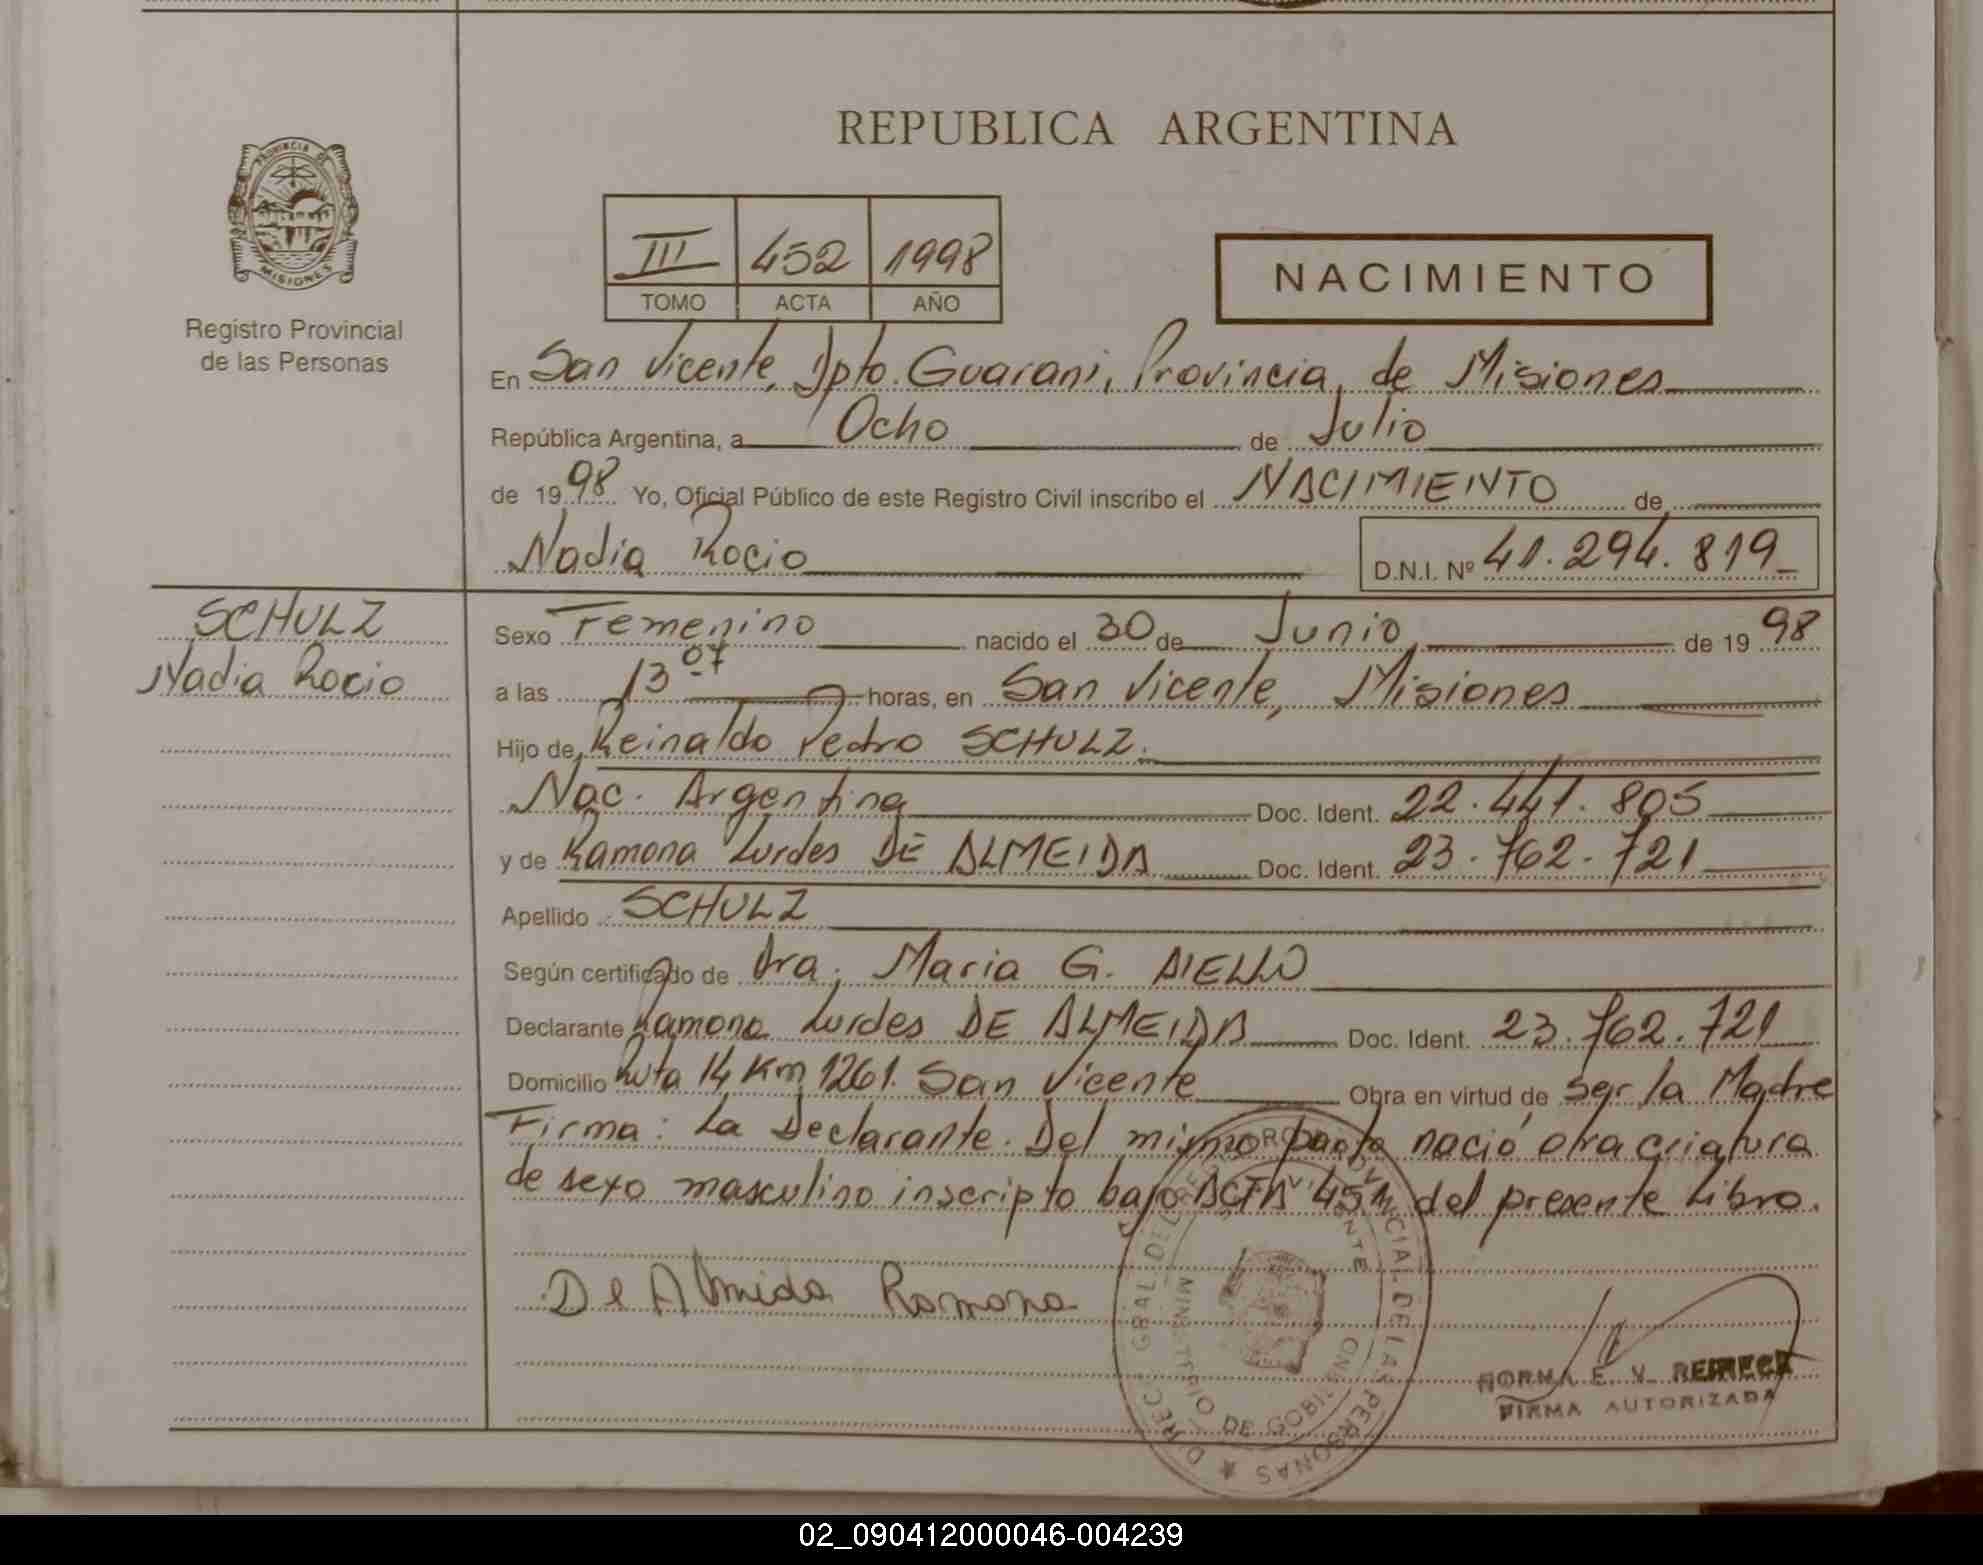 REPUBLICA ARGENTINA
PROVINCIA DE
MISIONES
Registro Provincial
de las Personas
III 452 1998
TOMO ACTA AÑO
NACIMIENTO
En San Vicente, Dpto. Guarani, Provincia de Misiones
República Argentina, a Ocho de Julio
de 1998 Yo, Oficial Público de este Registro Civil inscribo el NACIMIENTO de
Nadia Rocio D.N.I. Nº 41.294.819
SCHULZ
Nadia Rocio
Sexo Femenino nacido el 30 de Junio de 1998
a las 13 07 horas, en San Vicente, Misiones
Hijo de Reinaldo Pedro SCHULZ.
Nac. Argentina Doc. Ident. 22.441.805
y de Ramona Lurdes DE ALMEIDA Doc. Ident. 23.762.721
Apellido SCHULZ
Según certificado de Dra. Maria G. AIELLO
Declarante Ramona Lurdes DE ALMEIDA Doc. Ident. 23.762.721
Domicilio Ruta 14 Km 1261. San Vicente Obra en virtud de Ser la Madre
Firma: La Declarante. Del mismo parto nació otra criatura
de sexo masculino inscripto bajo ACTA 451 del presente Libro.
De Almida Ramona
PROVINCIAL DE LAS PERSONAS
MINISTERIO DE GOBIERNO
NORMA E. V.
FIRMA AUTORIZADA
02_090412000046-004239